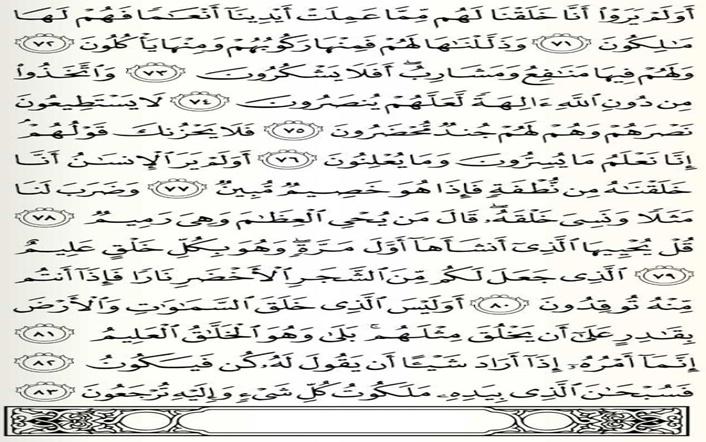 أَوَلَمْ يَرَوْا۟ أَنَّا خَلَقْنَا لَهُم مِّمَّا عَمِلَتْ أَيْدِينَآ أَنْعَٰمًا فَهُمْ لَهَا
مَٰلِكُونَ ٧١ وَذَلَّلْنَٰهَا لَهُمْ فَمِنْهَا رَكُوبُهُمْ وَمِنْهَا يَأْكُلُونَ ٧٢
وَلَهُمْ فِيهَا مَنَٰفِعُ وَمَشَارِبُ ۖ أَفَلَا يَشْكُرُونَ ٧٣ وَٱتَّخَذُوا۟
مِن دُونِ ٱللَّهِ ءَالِهَةً لَّعَلَّهُمْ يُنصَرُونَ ٧٤ لَا يَسْتَطِيعُونَ
نَصْرَهُمْ وَهُمْ لَهُمْ جُندٌ مُّحْضَرُونَ ٧٥ فَلَا يَحْزُنكَ قَوْلُهُمْ ۘ
إِنَّا نَعْلَمُ مَا يُسِرُّونَ وَمَا يُعْلِنُونَ ٧٦ أَوَلَمْ يَرَ ٱلْإِنسَٰنُ أَنَّا
خَلَقْنَٰهُ مِن نُّطْفَةٍ فَإِذَا هُوَ خَصِيمٌ مُّبِينٌ ٧٧ وَضَرَبَ لَنَا
مَثَلًا وَنَسِىَ خَلْقَهُۥ ۖ قَالَ مَن يُحْىِ ٱلْعِظَٰمَ وَهِىَ رَمِيمٌ ٧٨
قُلْ يُحْيِيهَا ٱلَّذِىٓ أَنشَأَهَآ أَوَّلَ مَرَّةٍ ۖ وَهُوَ بِكُلِّ خَلْقٍ عَلِيمٌ
٧٩ ٱلَّذِى جَعَلَ لَكُم مِّنَ ٱلشَّجَرِ ٱلْأَخْضَرِ نَارًا فَإِذَآ أَنتُم
مِّنْهُ تُوقِدُونَ ٨٠ أَوَلَيْسَ ٱلَّذِى خَلَقَ ٱلسَّمَٰوَٰتِ وَٱلْأَرْضَ
بِقَٰدِرٍ عَلَىٰٓ أَن يَخْلُقَ مِثْلَهُم ۚ بَلَىٰ وَهُوَ ٱلْخَلَّٰقُ ٱلْعَلِيمُ ٨١
إِنَّمَآ أَمْرُهُۥٓ إِذَآ أَرَادَ شَيْـًٔا أَن يَقُولَ لَهُۥ كُن فَيَكُونُ ٨٢
فَسُبْحَٰنَ ٱلَّذِى بِيَدِهِۦ مَلَكُوتُ كُلِّ شَىْءٍ وَإِلَيْهِ تُرْجَعُونَ ٨٣